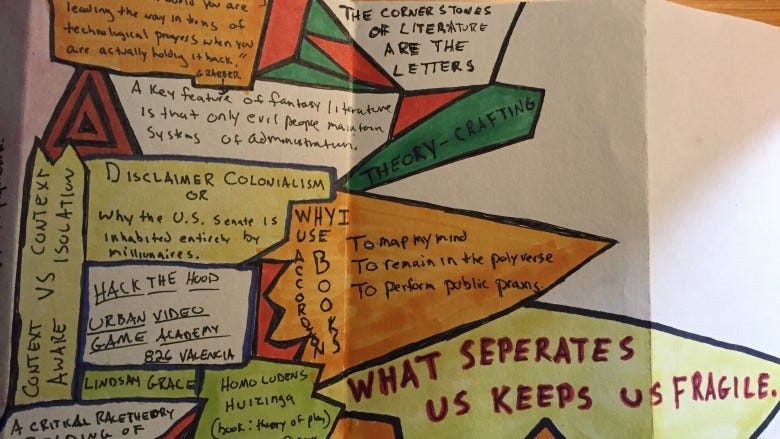 world you are
leading the way in terms of
technological progress when you
are actually holding it back."
GRAEBER
THE CORNERSTONES
OF LITERATURE
ARE THE
LETTERS
A Key feature of fantasy literature
is that only evil people maintain
systems of administration.
THEORY-CRAFTING
CONTEXT VS CONTEXT
AWARE ISOLATION
DISCLAIMER COLONIALISM
OR
Why the U.S. Senate is
inhabited entirely by
millionaires.
WHY I
USE
ACCORDIAN
BOOKS
To map my mind
To remain in the polyverse
To perform public praxis.
HACK THE HOOD
URBAN VIDEO
GAME ACADEMY
826 VALENCIA
LINDSAY GRACE
HOMO LUDENS
HUIZINGA
(book: theory of play)
WHAT SEPERATES
US KEEPS US FRAGILE.
A CRITICAL RACE THEORY
OF